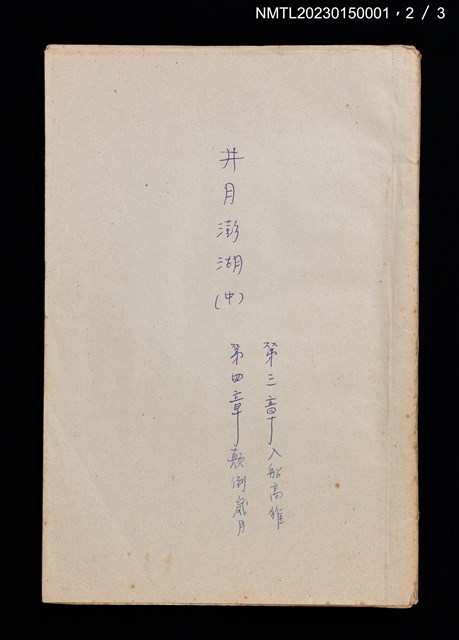 NMTL20230150001,2/3
井月澎湖(中)
第三章 入船高雄
第四章 顛倒歲月